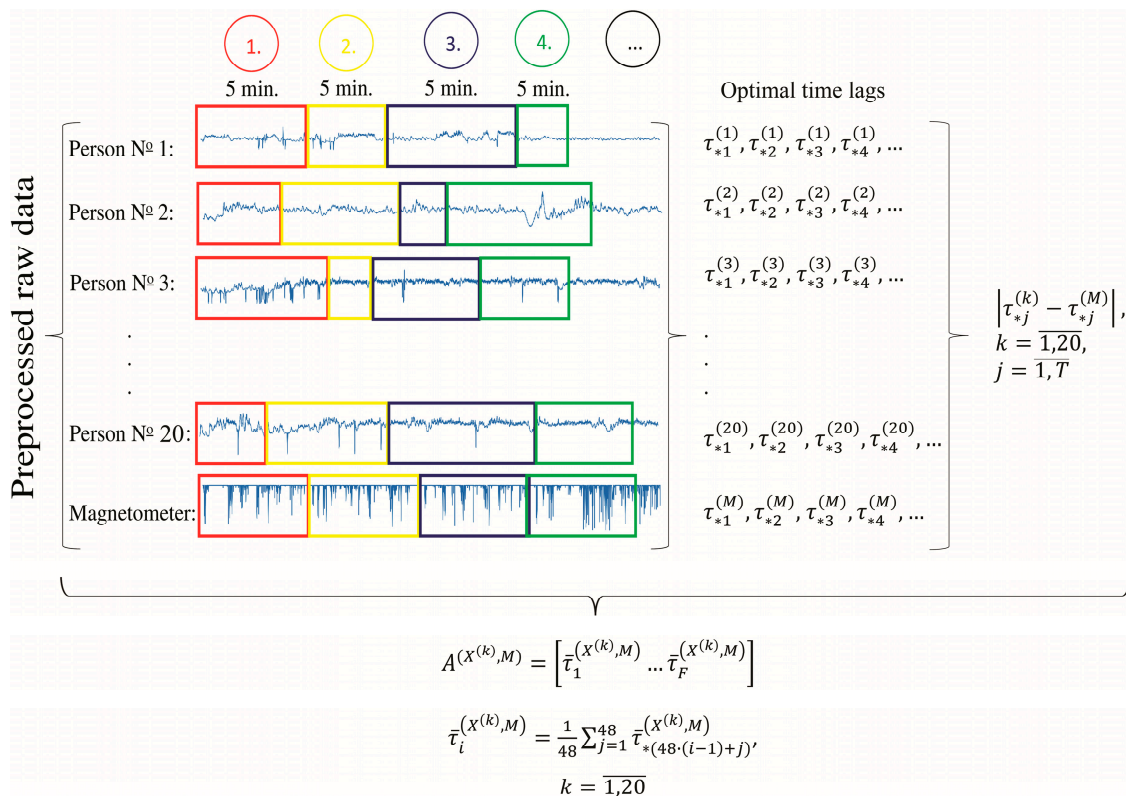 1. 2. 3. 4. ...
5 min. 5 min. 5 min. 5 min.
Optimal time lags
Preprocessed raw data
Person № 1:
τ_{*1}^{(1)}, τ_{*2}^{(1)}, τ_{*3}^{(1)}, τ_{*4}^{(1)}, ...
Person № 2:
τ_{*1}^{(2)}, τ_{*2}^{(2)}, τ_{*3}^{(2)}, τ_{*4}^{(2)}, ...
Person № 3:
τ_{*1}^{(3)}, τ_{*2}^{(3)}, τ_{*3}^{(3)}, τ_{*4}^{(3)}, ...
|τ_{*j}^{(k)} − τ_{*j}^{(M)}|,
k = \overline{1,20},
j = \overline{1,T}
.
.
.
.
.
.
Person № 20:
τ_{*1}^{(20)}, τ_{*2}^{(20)}, τ_{*3}^{(20)}, τ_{*4}^{(20)}, ...
Magnetometer:
τ_{*1}^{(M)}, τ_{*2}^{(M)}, τ_{*3}^{(M)}, τ_{*4}^{(M)}, ...
A^{(X^{(k)},M)} = [\bar{τ}_1^{(X^{(k)},M)} ... \bar{τ}_F^{(X^{(k)},M)}]
\bar{τ}_i^{(X^{(k)},M)} = \frac{1}{48} ∑_{j=1}^{48} \bar{τ}_{*(48·(i−1)+j)}^{(X^{(k)},M)},
k = \overline{1,20}